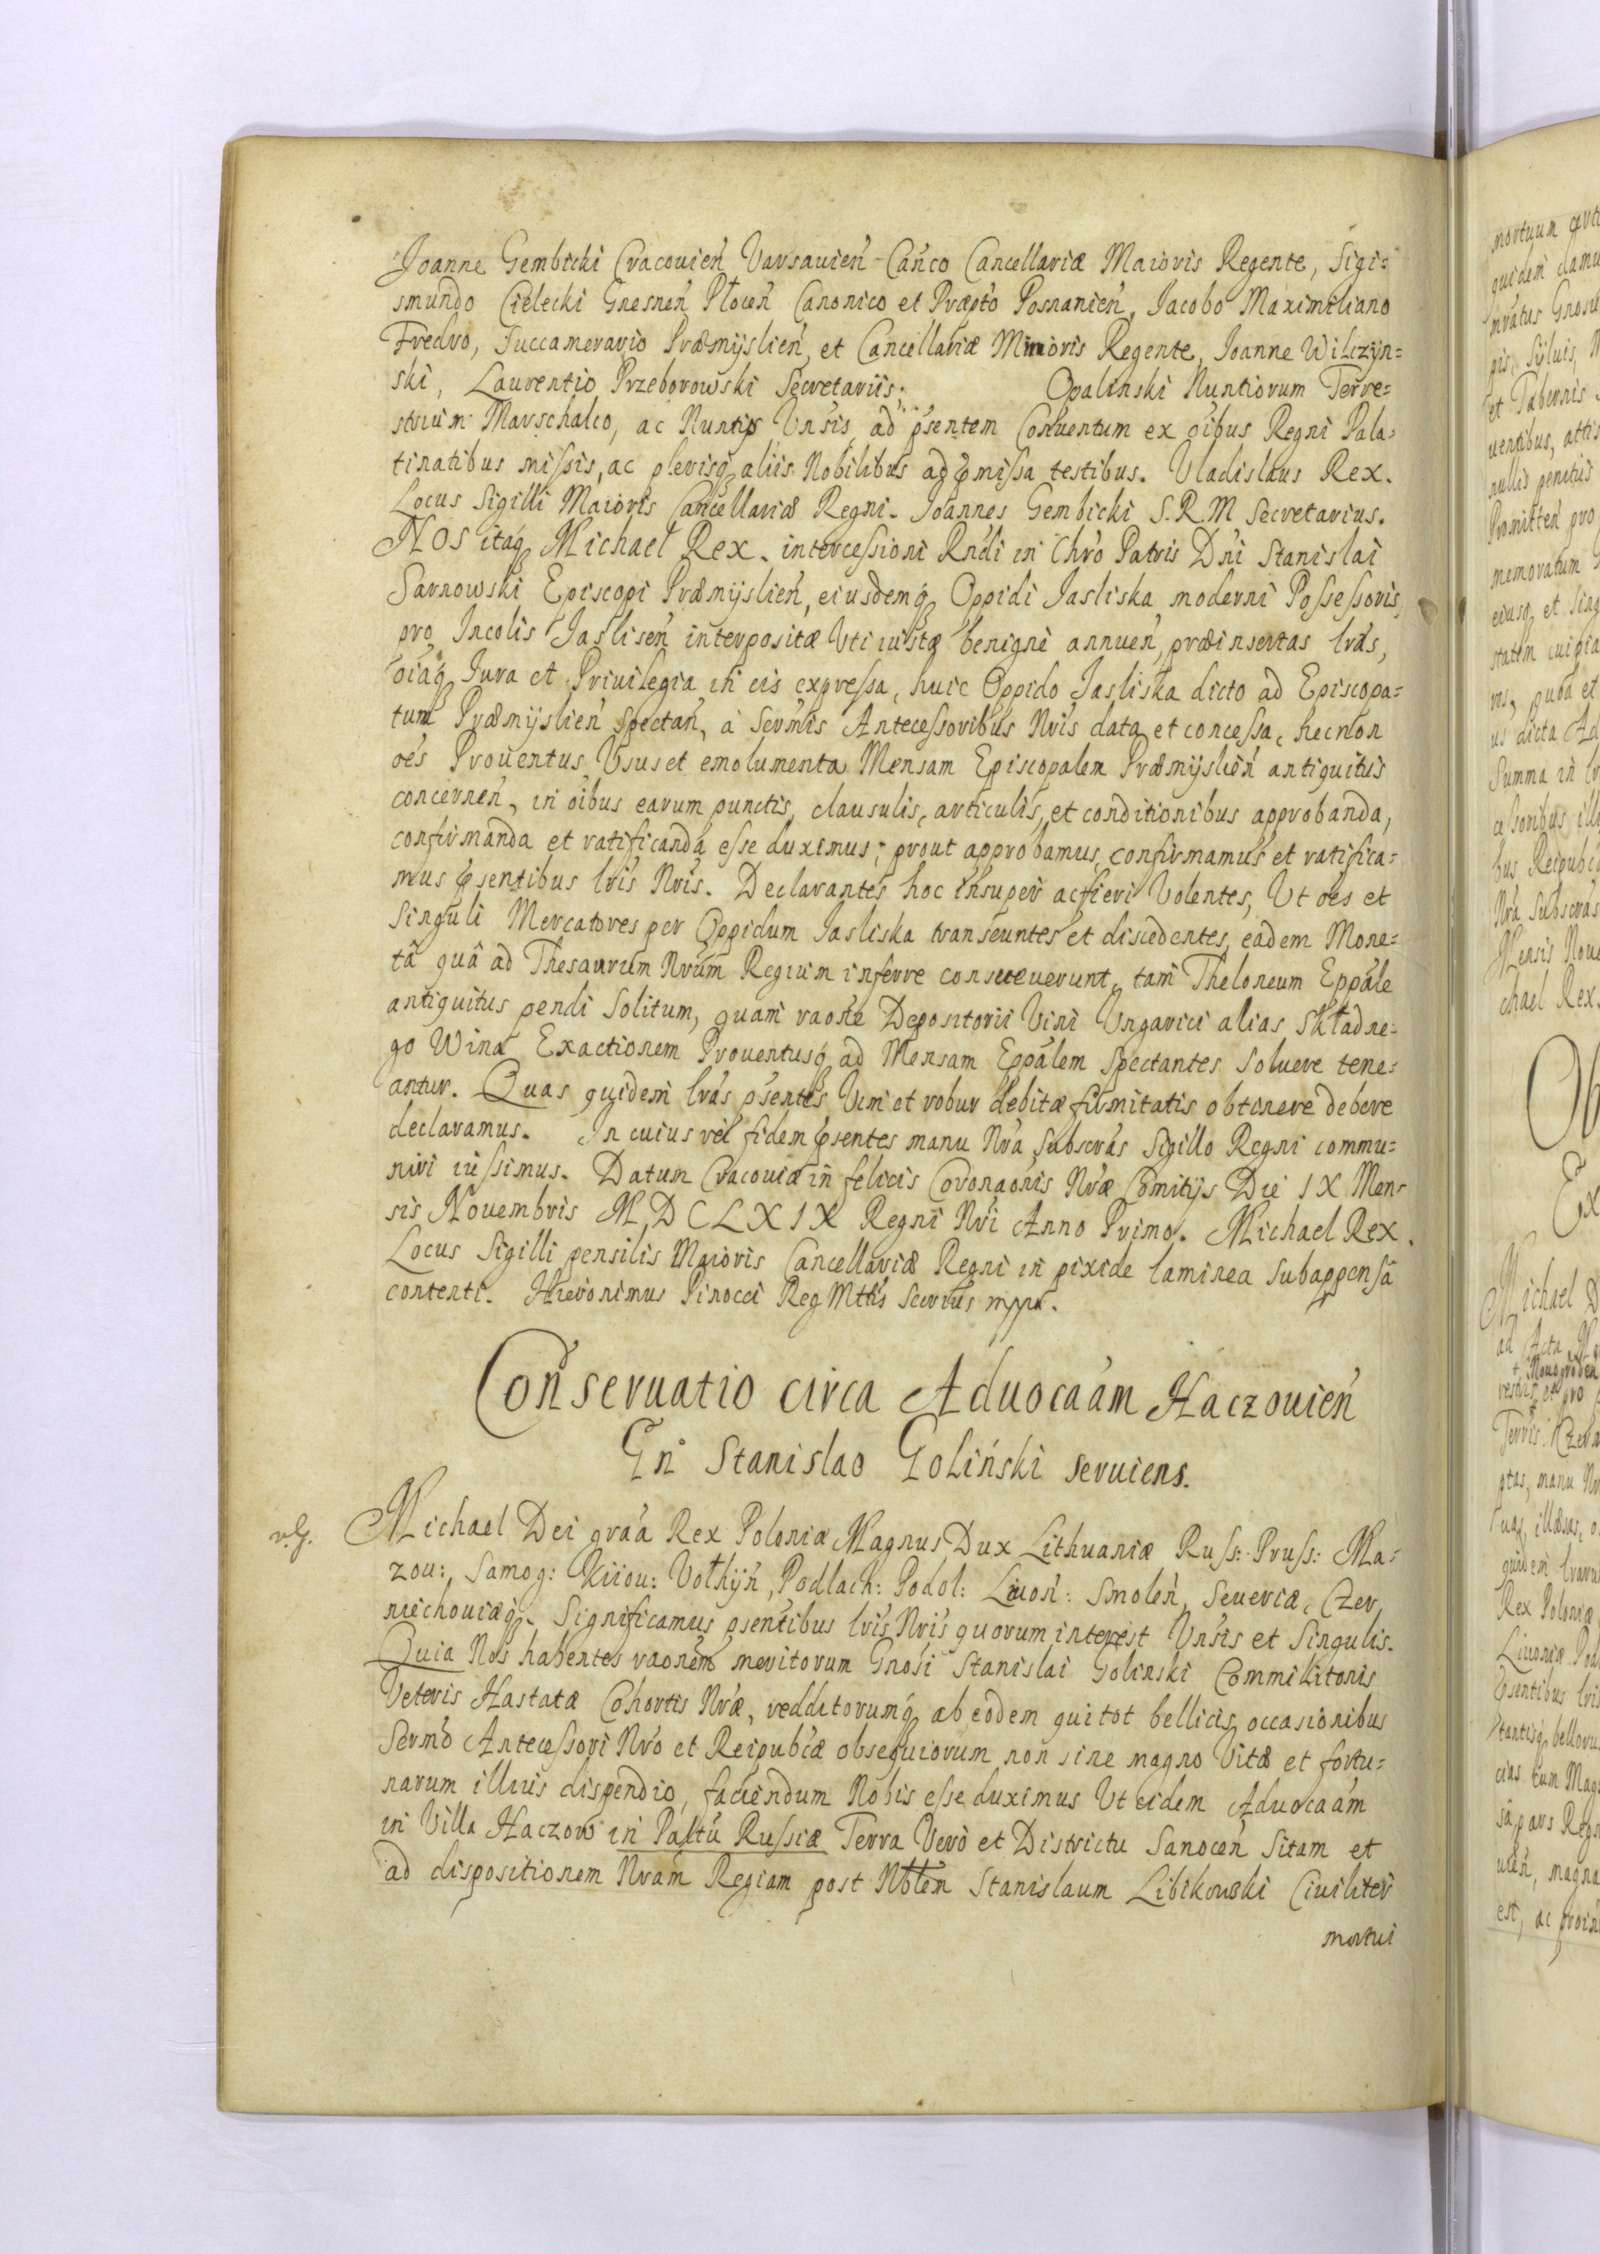 Joanne Gembicki Cracouień Varsauień Cańco Cancellariæ Maioris Regente, Sigi=
smundo Cielecki Gnesneń Płoceń Canonico et Præpto Posnanień, Jacobo Maximiliano
Fredro, Succamerario Præmÿslień, et Cancellariæ Minoris Regente, Joanne Wilczÿn=
ski, Laurentio Przeborowski Secretariis; Opalinski Nuntiorum Terre=
strium Marschalco, ac Nuntÿs Vnsis, ad pśentem Conuentum ex oibus Regni Pala=
tinatibus missis, ac plerisq aliis Nobilibus ad pmissa testibus. Vladislaus Rex.
Locus Sigilli Maioris Cancellariæ Regni. Joannes Gembicki S.R.M Secretarius.
NOS itaq Michael Rex. intercessioni Rńdi in Chro Patris Dńi Stanislai
Sarnowski Episcopi Præmÿslień, eiusdemq Oppidi Jasliska moderni Possessoris,
pro Incolis Jasliseń interpositæ Vti iustæ benigne annueń, præinsertas lrás,
oiaq Jura et Priuilegia in eis expressa, huic Oppido Jasliska dicto ad Episcopa=
tum Præmÿslień Spectań, à Sermis Antecessoribus Nris data et concessa, necnon
oés Prouentus Vsus et emolumenta Mensam Episcopalem Præmÿslień antiquitus
concerneń, in oibus earum punctis, clausulis, articulis, et conditionibus approbanda,
confirmanda et ratificanda esse duximus; prout approbamus, confirmamus et ratifica=
mus psentibus lris Nris. Declarantes hoc insuper ac fieri Volentes, Vt oés et
Singuli Mercatores per Oppidum Jasliska transeuntes et discedentes, eadem Mone=
tâ quâ ad Thesaurum Nrum Regium inferre consueuerunt, tam Theloneum Eppále
antiquitus pendi Solitum, quam raone Depositorii Vini Vngarici alias Składne=
go Wina Exactionem Prouentusq ad Mensam Eppálem Spectantes Soluere tene=
antur. Quas quidem lrás psentes Vim et robur debitæ firmitatis obtinere debere
declaramus. In cuius rei fidem psentes manu Nra Subscrás Sigillo Regni commu=
niri iussimus. Datum Cracouiæ in felicis Coronaonis Nræ Comitÿs Die IX Men=
sis Nouembris M,DCLXIX Regni Nri Anno Primo. Michael Rex.
Locus Sigilli pensilis Maioris Cancellariæ Regni in pixide laminea Subappensâ
contenti. Hieronimus Pinocci Reg Mttis Scrius mppa.
Conseruatio circa Aduocaám Haczouień
Gń Stanislao Goliński seruiens.
Michael Dei graá Rex Poloniæ Magnus Dux Lithuaniæ Russ: Pruss: Ma=
zou: Samog: Kiiou: Volhÿń, Podlach: Podol: Liuoń: Smoleń, Seueriæ, Czer
niechouiæq. Significamus psentibus lris Nris quorum interest Vnsis et Singulis.
Quia Nos habentes raonem meritorum Gnosi Stanislai Golinski Commilitonis
Veteris Hastatæ Cohortis Nræ, redditorumq ab eodem qui tot bellicis occasionibus
Sermo Antecessori Nro et Reipubcæ obsequiorum non sine magno Vitæ et fortu=
narum illius dispendio, faciendum Nobis esse duximus Vt eidem Aduocaám
in Villa Haczow in Palttu Russiæ Terra Verò et Districtu Sanoceń Sitam et
ad dispositionem Nram Regiam post Nbtlem Stanislaum Libikowski Ciuiliter
mortui